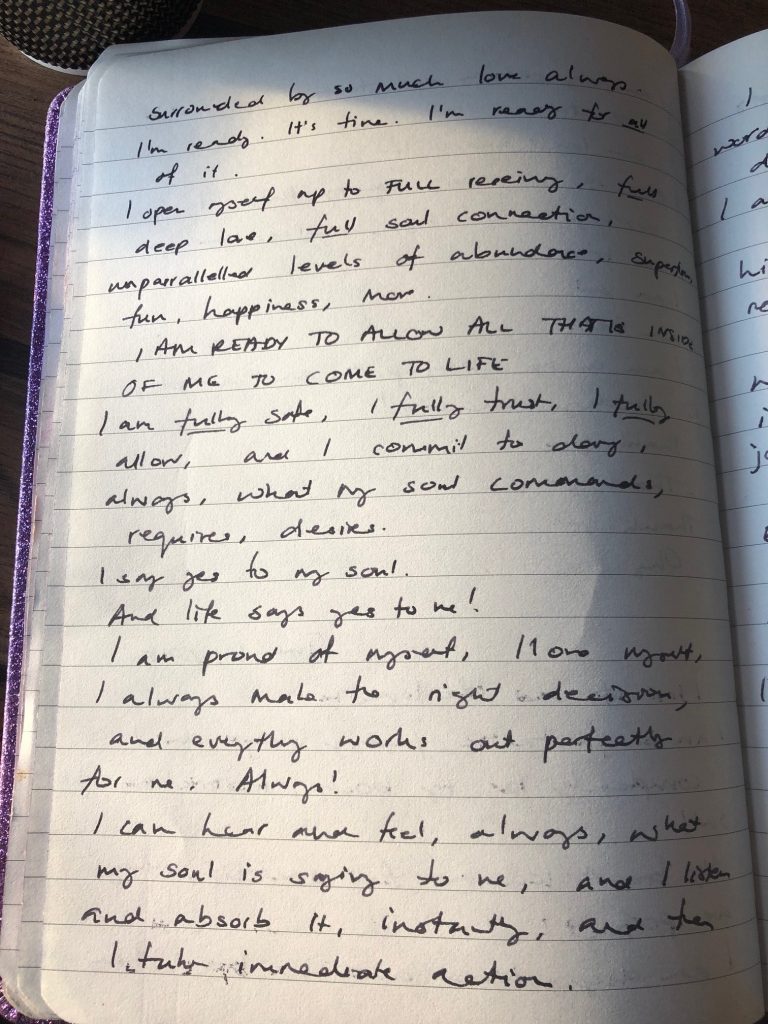 surrounded by so much love always.
I'm ready. It's time. I'm ready for all
of it.
I open myself up to FULL receiving, full
deep love, full soul connection,
unparrallelled levels of abundance,
fun, happiness, more.
I AM READY TO ALLOW ALL THAT IS INSIDE
OF ME TO COME TO LIFE
I am fully safe, I fully trust, I fully
allow, and I commit to doing,
always, what my soul commands,
requires, desires.
I say yes to my soul.
And life says yes to me!
I am proud of myself, I love myself,
I always make the right decision,
and everything works out perfectly
for me. Always!
I can hear and feel, always, what
my soul is saying to me, and I listen
and absorb it, instantly, and then
I take immediate action.
I
word
I a
hi
ne
i